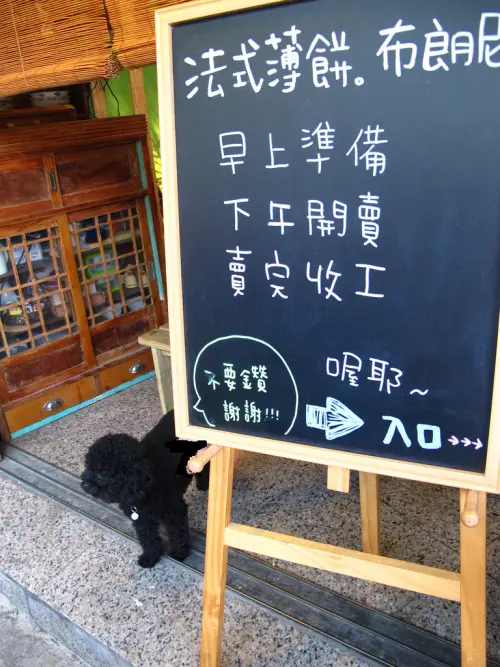 法式薄餅。布朗尼
早上準備
下午開賣
賣完收工
喔耶~
不要鑽
謝謝!!!
入口